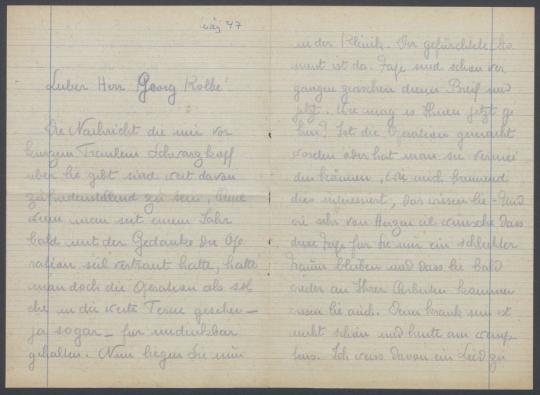 März 47
Lieber Herr Georg Kolbe!
Die Nachricht die mir vor
kurzem Fräulein Schwarzkopf
über Sie gibt sind weit davon
zufriedenstellend zu sein, Denn
wenn man seit einem Jahr
bald mit der Gedanke der Ope
ration sich vertraut hatte, hatte
man doch die Operation als sol
che in die weite Ferne gesehen –
ja sogar – für undenkbar
gehalten. Nun liegen Sie nun
in der Klinik. Der gefürchtete Mo
ment ist da. Tage sind schon ver
gangen zwischen diesem Brief und
jetzt. Wie mag es Ihnen jetzt ge
hen? Ist die Operation gemacht
worden oder hat man sie vermei
den können, wie mich brennend
dies interessiert, das wissen Sie – Und
wie sehr von Herzen ich wünsche dass
diese Tage für Sie nur ein schlechter
Traum bleiben und dass Sie bald
wieder an Ihrer Arbeiten kommen
wissen Sie auch. Denn krank sein ist
nicht schön und heute am wenigs
tens. Ich weiss davon ein Lied zu